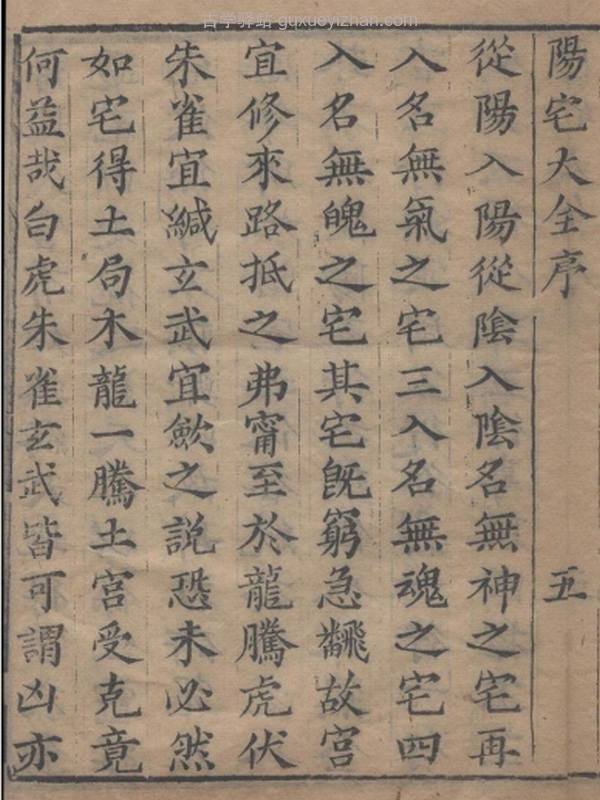 古学驿站 guxueyizhan.com
陽宅大全序 五
從陽入陽從陰入陰名無神之宅再
入名無氣之宅三入名無魂之宅四
入名無魄之宅其宅既窮急飜故宮
宜修來路抵之弗甯至於龍騰虎伏
朱雀宜緘玄武宜歛之說恐未必然
如宅得土局木龍一騰土宮受克竟
何益哉白虎朱雀玄武皆可謂凶亦